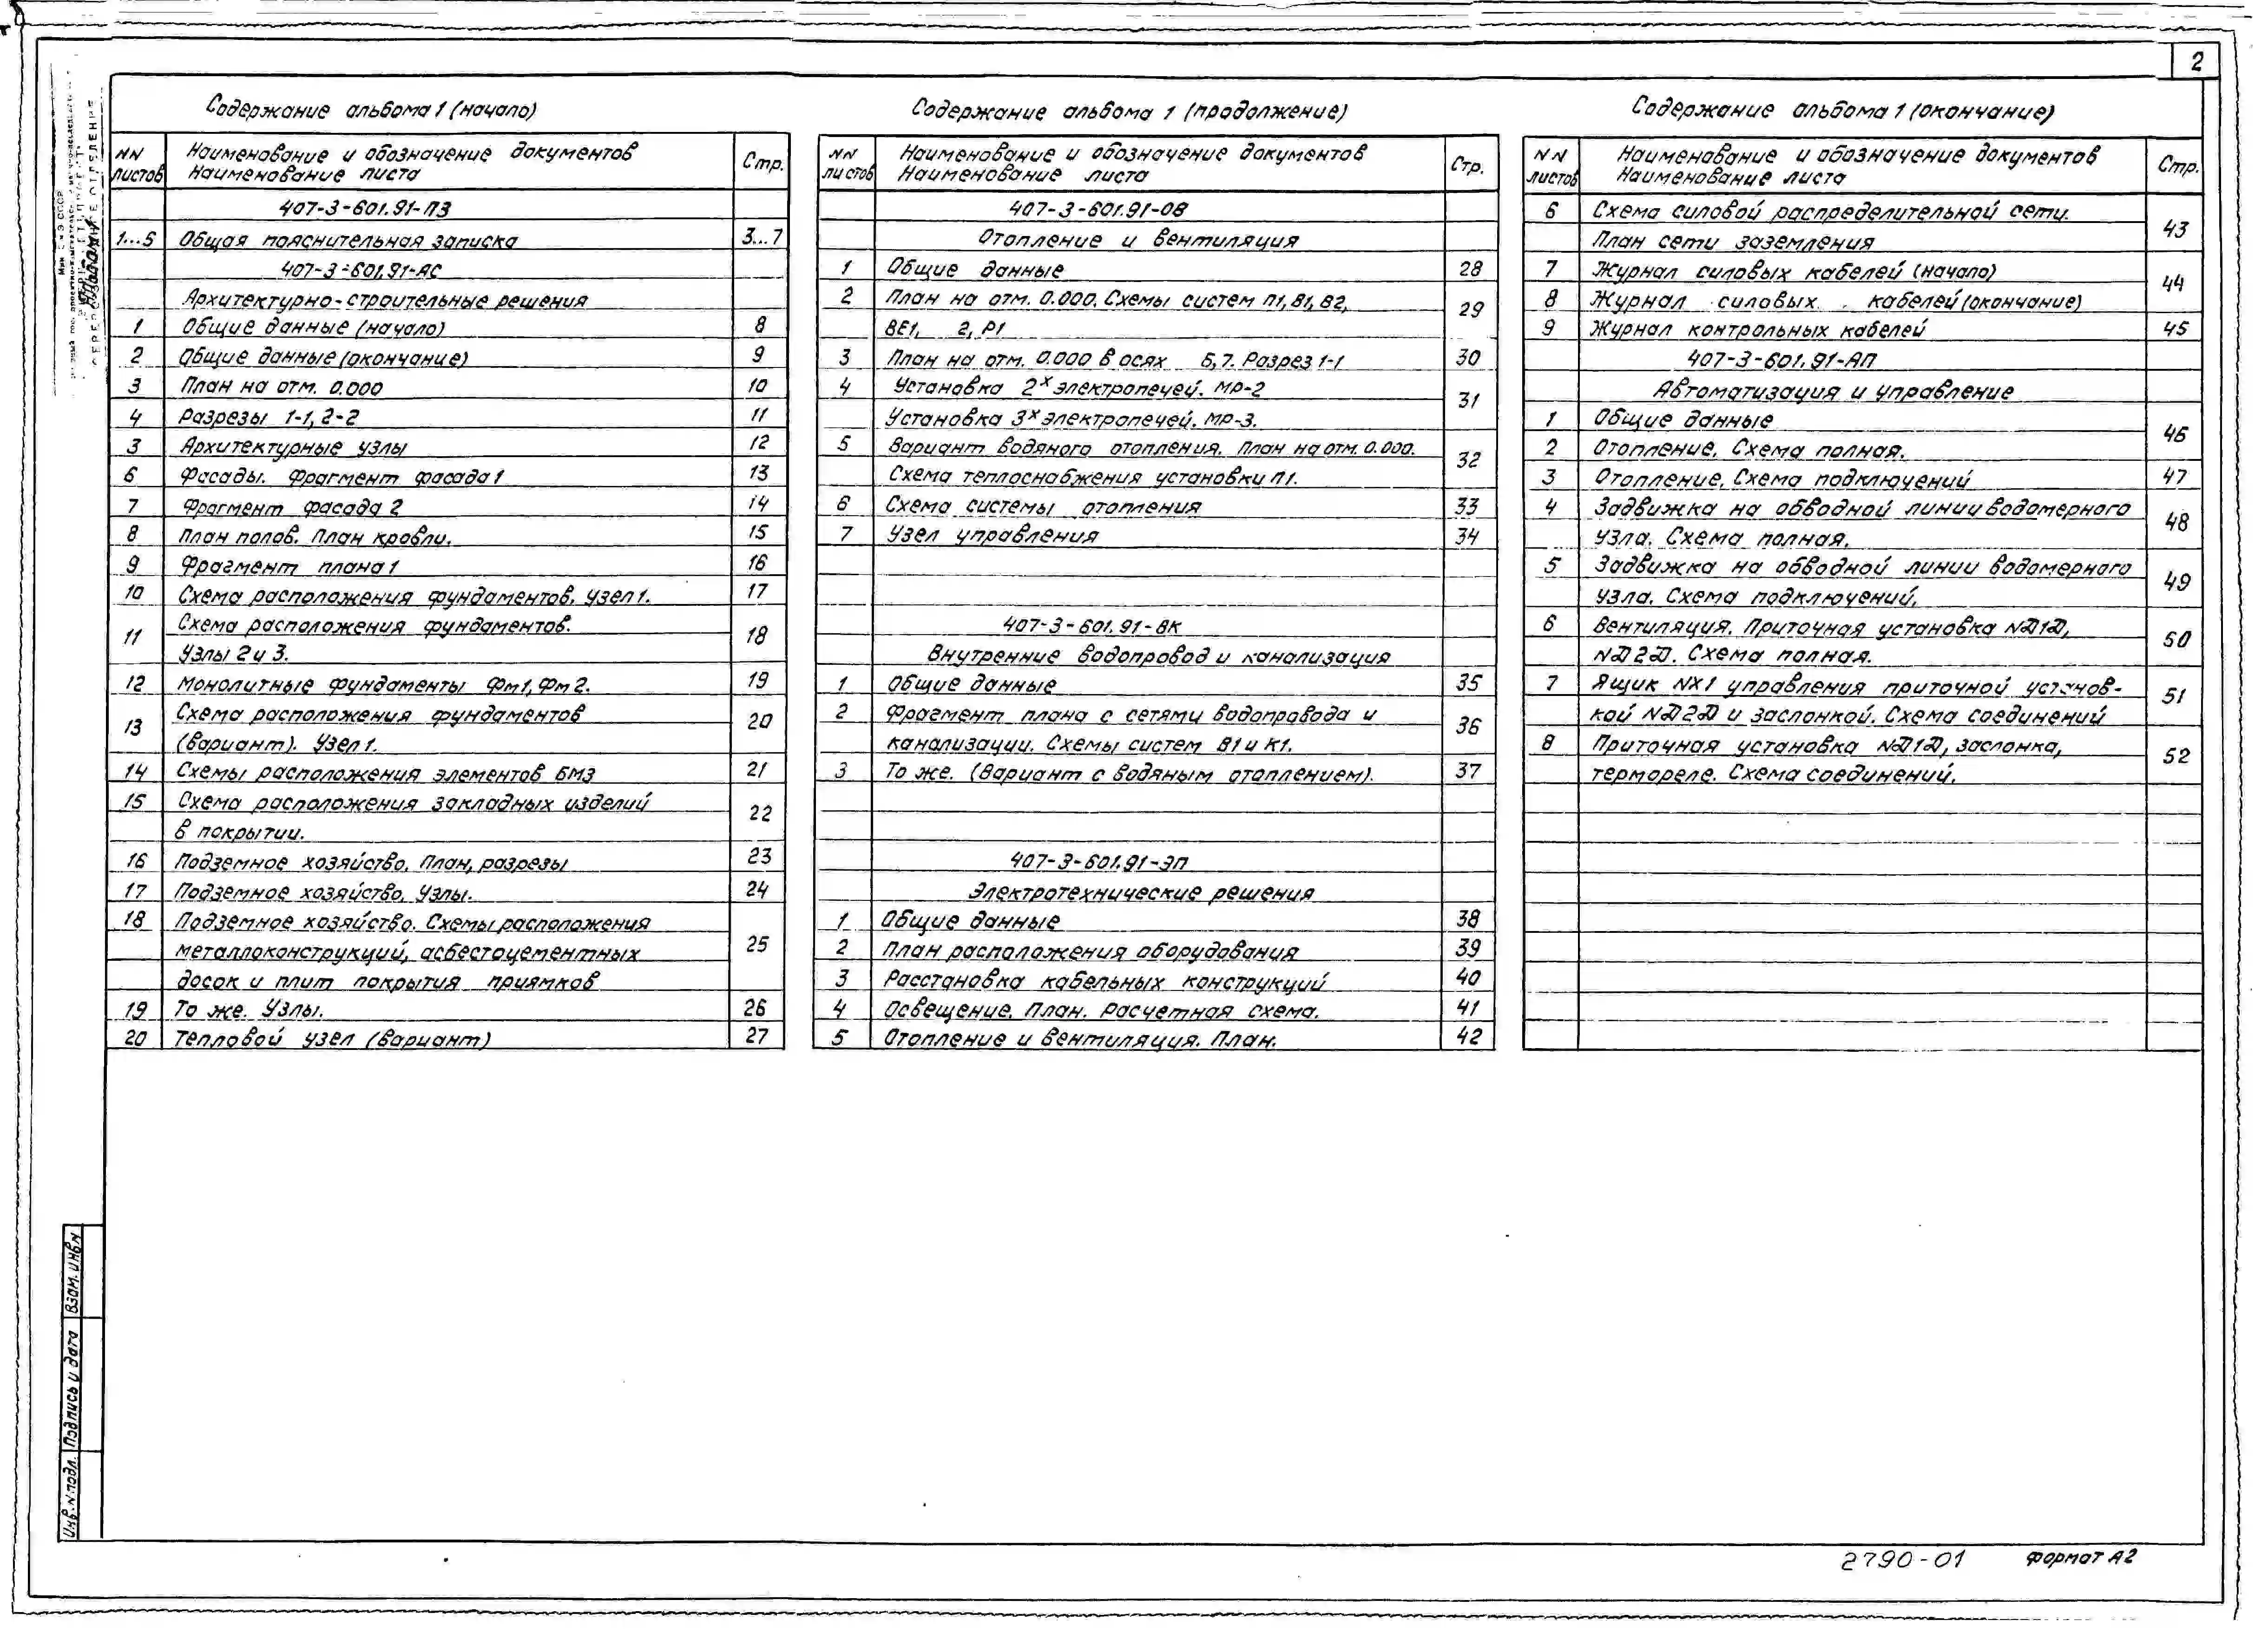 2
Содержание альбома 1 (начало)
NN листов | Наименование и обозначение документов Наименование листа | Стр.
407-3-601.91-ПЗ
1...5 | Общая пояснительная записка | 3...7
407-3-601.91-АС
Архитектурно-строительные решения
1 | Общие данные (начало) | 8
2 | Общие данные (окончание) | 9
3 | План на отм. 0.000 | 10
4 | Разрезы 1-1, 2-2 | 11
3 | Архитектурные узлы | 12
6 | Фасады. Фрагмент фасада 1 | 13
7 | Фрагмент фасада 2 | 14
8 | План полов. План кровли. | 15
9 | Фрагмент плана 1 | 16
10 | Схема расположения фундаментов. Узел 1. | 17
11 | Схема расположения фундаментов. | 18
Узлы 2 и 3.
12 | Монолитные фундаменты Фм1, Фм2. | 19
13 | Схема расположения фундаментов | 20
(вариант). Узел 1.
14 | Схемы расположения элементов БМЗ | 21
15 | Схема расположения закладных изделий | 22
в покрытии.
16 | Подземное хозяйство. План, разрезы | 23
17 | Подземное хозяйство. Узлы. | 24
18 | Подземное хозяйство. Схемы расположения | 25
металлоконструкций, асбестоцементных
досок и плит покрытия приямков
19 | То же. Узлы. | 26
20 | Тепловой узел (вариант) | 27
Содержание альбома 1 (продолжение)
NN листов | Наименование и обозначение документов Наименование листа | Стр.
407-3-601.91-ОВ
Отопление и вентиляция
1 | Общие данные | 28
2 | План на отм. 0.000. Схемы систем П1, В1, В2, | 29
ВЕ1, 2, Р1
3 | План на отм. 0.000 в осях 6,7. Разрез 1-1 | 30
4 | Установка 2х электропечей. МР-2 | 31
Установка 3х электропечей. МР-3.
5 | Вариант водяного отопления. План на отм. 0.000. | 32
Схема теплоснабжения установки П1.
6 | Схема системы отопления | 33
7 | Узел управления | 34
407-3-601.91-ВК
Внутренние водопровод и канализация
1 | Общие данные | 35
2 | Фрагмент плана с сетями водопровода и | 36
канализации. Схемы систем В1 и К1.
3 | То же. (Вариант с водяным отоплением). | 37
407-3-601.91-ЭП
Электротехнические решения
1 | Общие данные | 38
2 | План расположения оборудования | 39
3 | Расстановка кабельных конструкций | 40
4 | Освещение. План. Расчетная схема. | 41
5 | Отопление и вентиляция. План. | 42
Содержание альбома 1 (окончание)
NN листов | Наименование и обозначение документов Наименование листа | Стр.
6 | Схема силовой распределительной сети. | 43
План сети заземления
7 | Журнал силовых кабелей (начало) | 44
8 | Журнал силовых кабелей (окончание)
9 | Журнал контрольных кабелей | 45
407-3-601.91-АП
Автоматизация и управление
1 | Общие данные | 46
2 | Отопление. Схема полная.
3 | Отопление. Схема подключений | 47
4 | Задвижка на обводной линии водомерного | 48
узла. Схема полная.
5 | Задвижка на обводной линии водомерного | 49
узла. Схема подключений.
6 | Вентиляция. Приточная установка №D1D, | 50
№D2D. Схема полная.
7 | Ящик NX1 управления приточной установ- | 51
кой №D2D и заслонкой. Схема соединений
8 | Приточная установка №D1D, заслонка, | 52
термореле. Схема соединений.
Инв. N подл.
Подпись и дата
Взам. инв. N
2790-01
Формат А2